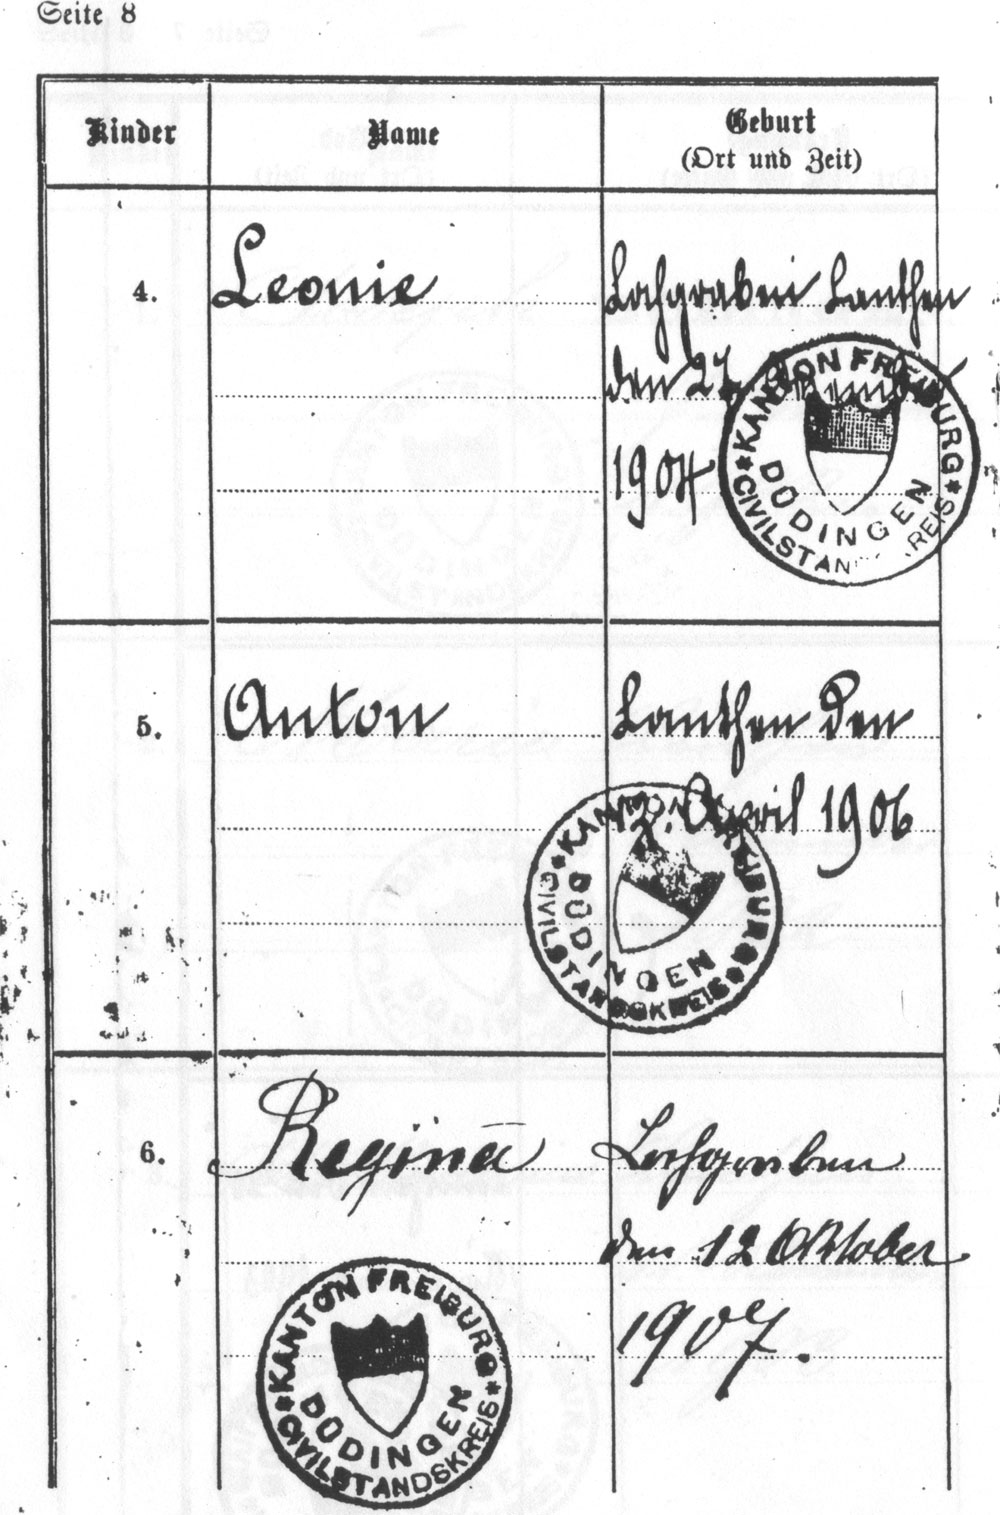 Seite 8
Kinder Name Geburt
(Ort und Zeit)
4. Leonie Lochgraben Lanthen
den 27.
1904
KANTON FREIBURG
DÜDINGEN
CIVILSTANDSKREIS
5. Anton Lanthen den
2. April 1906
KANTON FREIBURG
DÜDINGEN
CIVILSTANDSKREIS
6. Regina Lochgraben
den 12 Oktober
1907.
KANTON FREIBURG
DÜDINGEN
CIVILSTANDSKREIS